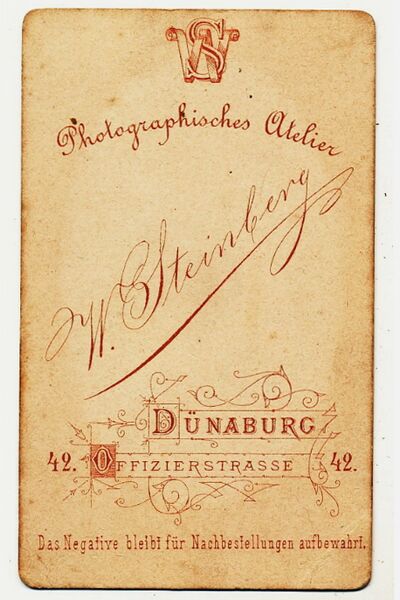 WS
Photographisches Atelier
W. Steinberg
DÜNABURG
42. OFFIZIERSTRASSE 42.
Das Negative bleibt für Nachbestellungen aufbewahrt.